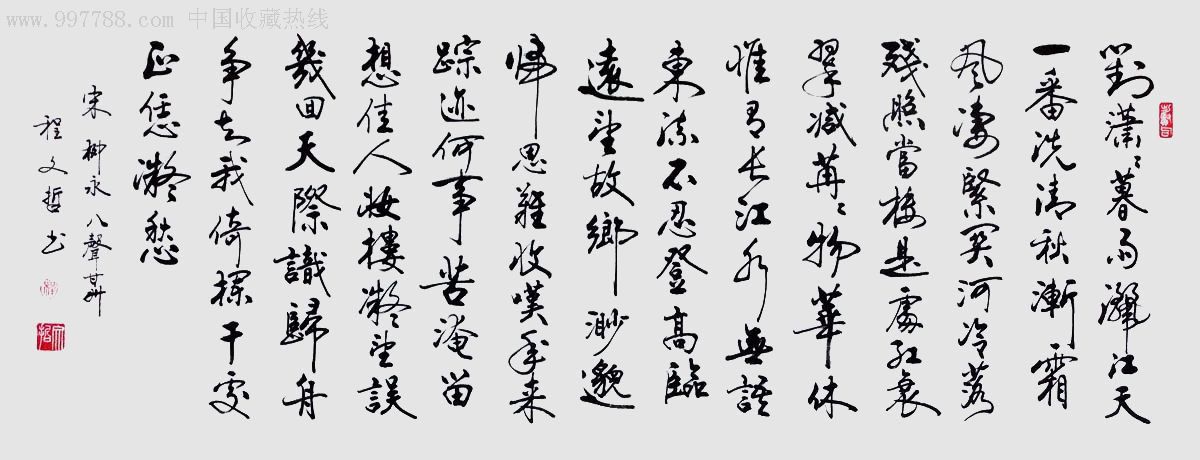 www.997788.com 中国收藏热线
對瀟々暮雨灑江天
一番洗清秋漸霜
風凄緊関河冷落
殘照當樓是處紅衰
翠减苒々物華休
惟有长江水無語
東流不忍登高臨
遠望故鄉渺邈
歸思難收嘆年来
踪迹何事苦淹留
想佳人妝樓凝望誤
幾回天際識歸舟
争知我倚欄干處
正恁凝愁
宋 柳永 八聲甘州
程文哲书